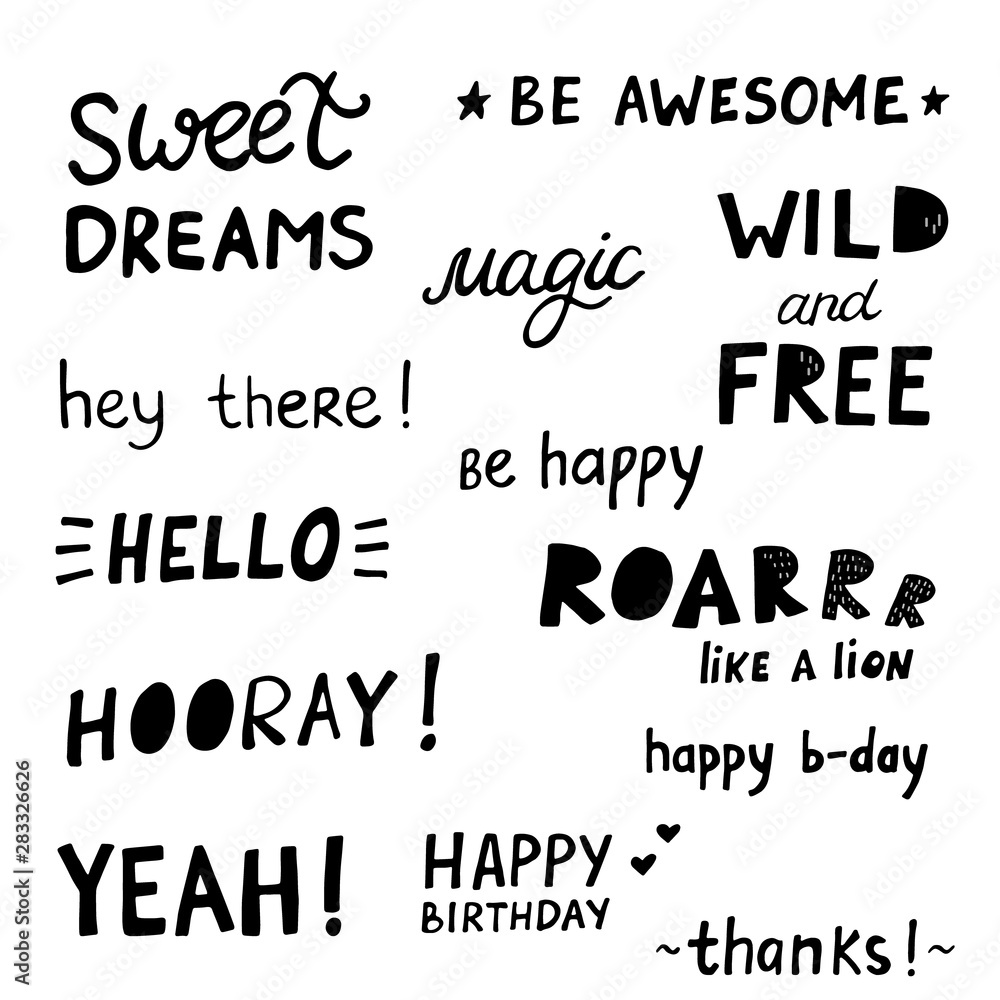 sweet
DREAMS
★ BE AWESOME ★
WILD
and
FREE
magic
hey theRe!
Be happy
HELLO
ROARRR
liKE A lion
HOORAY!
happy b-day
YEAH!
HAPPY
BIRTHDAY
~thanks!~
Adobe Stock | #283326626